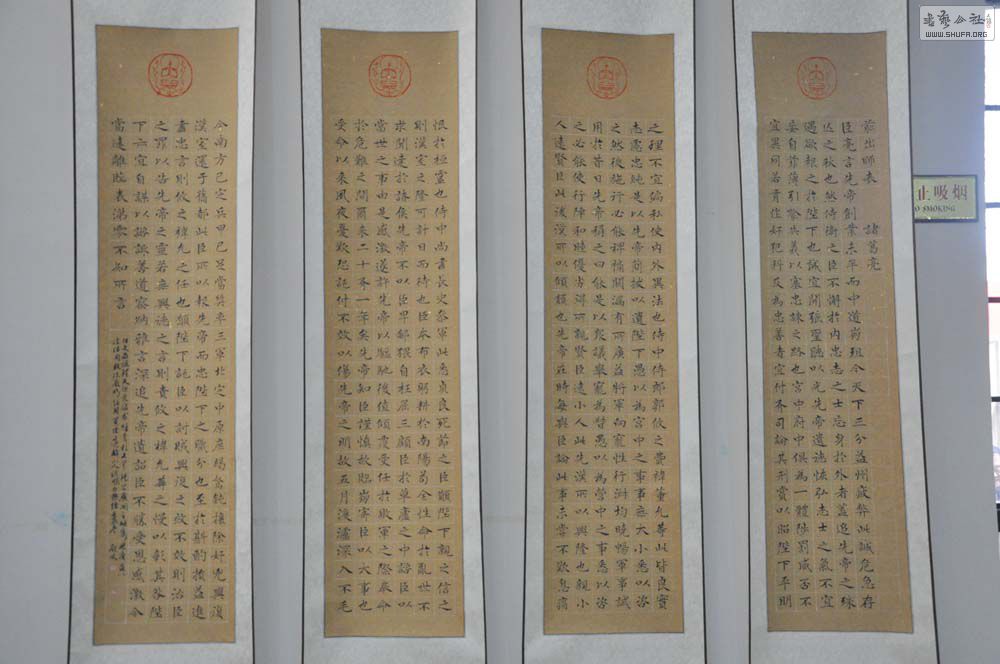 前出師表 諸葛亮
臣亮言先帝創業未半而中道崩殂今天下三分益州疲弊此誠危急存
亡之秋也然侍衛之臣不懈於內忠志之士忘身於外者蓋追先帝之殊
遇欲報之於陛下也誠宜開張聖聽以光先帝遺德恢弘志士之氣不宜
妄自菲薄引喻失義以塞忠諫之路也宮中府中俱為一體陟罰臧否不
宜異同若有作奸犯科及為忠善者宜付有司論其刑賞以昭陛下平明
之理不宜偏私使內外異法也侍中侍郎郭攸之費禕董允等此皆良實
志慮忠純是以先帝簡拔以遺陛下愚以為宮中之事事無大小悉以咨
之然後施行必能裨補闕漏有所廣益將軍向寵性行淑均曉暢軍事試
用於昔日先帝稱之曰能是以眾議舉寵為督愚以為營中之事悉以咨
之必能使行陣和睦優劣得所親賢臣遠小人此先漢所以興隆也親小
人遠賢臣此後漢所以傾頹也先帝在時每與臣論此事未嘗不歎息痛
恨於桓靈也侍中尚書長史參軍此悉貞良死節之臣願陛下親之信之
則漢室之隆可計日而待也臣本布衣躬耕於南陽苟全性命於亂世不
求聞達於諸侯先帝不以臣卑鄙猥自枉屈三顧臣於草廬之中諮臣以
當世之事由是感激遂許先帝以驅馳後值傾覆受任於敗軍之際奉命
於危難之間爾來二十有一年矣先帝知臣謹慎故臨崩寄臣以大事也
受命以來夙夜憂歎恐託付不效以傷先帝之明故五月渡瀘深入不毛
今南方已定兵甲已足當獎率三軍北定中原庶竭駑鈍攘除奸兇興復
漢室還于舊都此臣所以報先帝而忠陛下之職分也至於斟酌損益進
盡忠言則攸之禕允之任也願陛下託臣以討賊興復之效不效則治臣
之罪以告先帝之靈若無興德之言則責攸之禕允等之慢以彰其咎陛
下亦宜自謀以諮諏善道察納雅言深追先帝遺詔臣不勝受恩感激今
當遠離臨表涕零不知所言
止吸烟
SMOKING
書藝公社
WWW.SHUFA.ORG